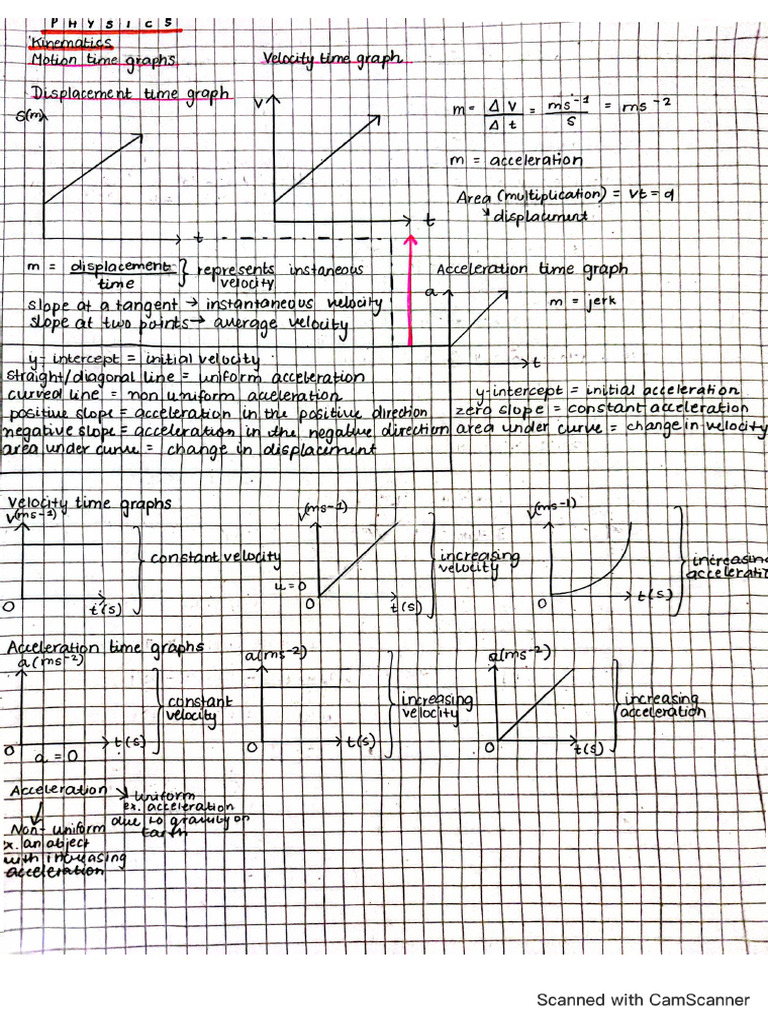 PHYSICS
Kinematics
Motion time graphs
Velocity time graph
Displacement time graph
S(m)
t
m = displacement / time } represents instaneous velocity
slope at a tangent → instantaneous velocity
slope at two points → average velocity
V
t
m = Δv / Δt = ms⁻¹ / s = ms⁻²
m = acceleration
Area (multiplication) = vt = d
↘ displacement
Acceleration time graph
a
m = jerk
t
y-intercept = initial velocity
straight/diagonal line = uniform acceleration
curved line = non uniform acceleration
positive slope = acceleration in the positive direction
negative slope = acceleration in the negative direction
area under curve = change in displacement
y-intercept = initial acceleration
zero slope = constant acceleration
area under curve = change in velocity
Velocity time graphs
V(ms-1)
0
t(s)
constant velocity
V(ms-1)
u=0
0
t(s)
increasing
velocity
V(ms-1)
0
t(s)
increasing
accelerati
Acceleration time graphs
a(ms-2)
0
a = 0
t(s)
constant
velocity
a(ms-2)
0
t(s)
increasing
velocity
a(ms-2)
0
t(s)
increasing
acceleration
Acceleration
↘ uniform
ex. acceleration
due to gravity on
Earth
Non-uniform
x. an object
with increasing
acceleration
Scanned with CamScanner